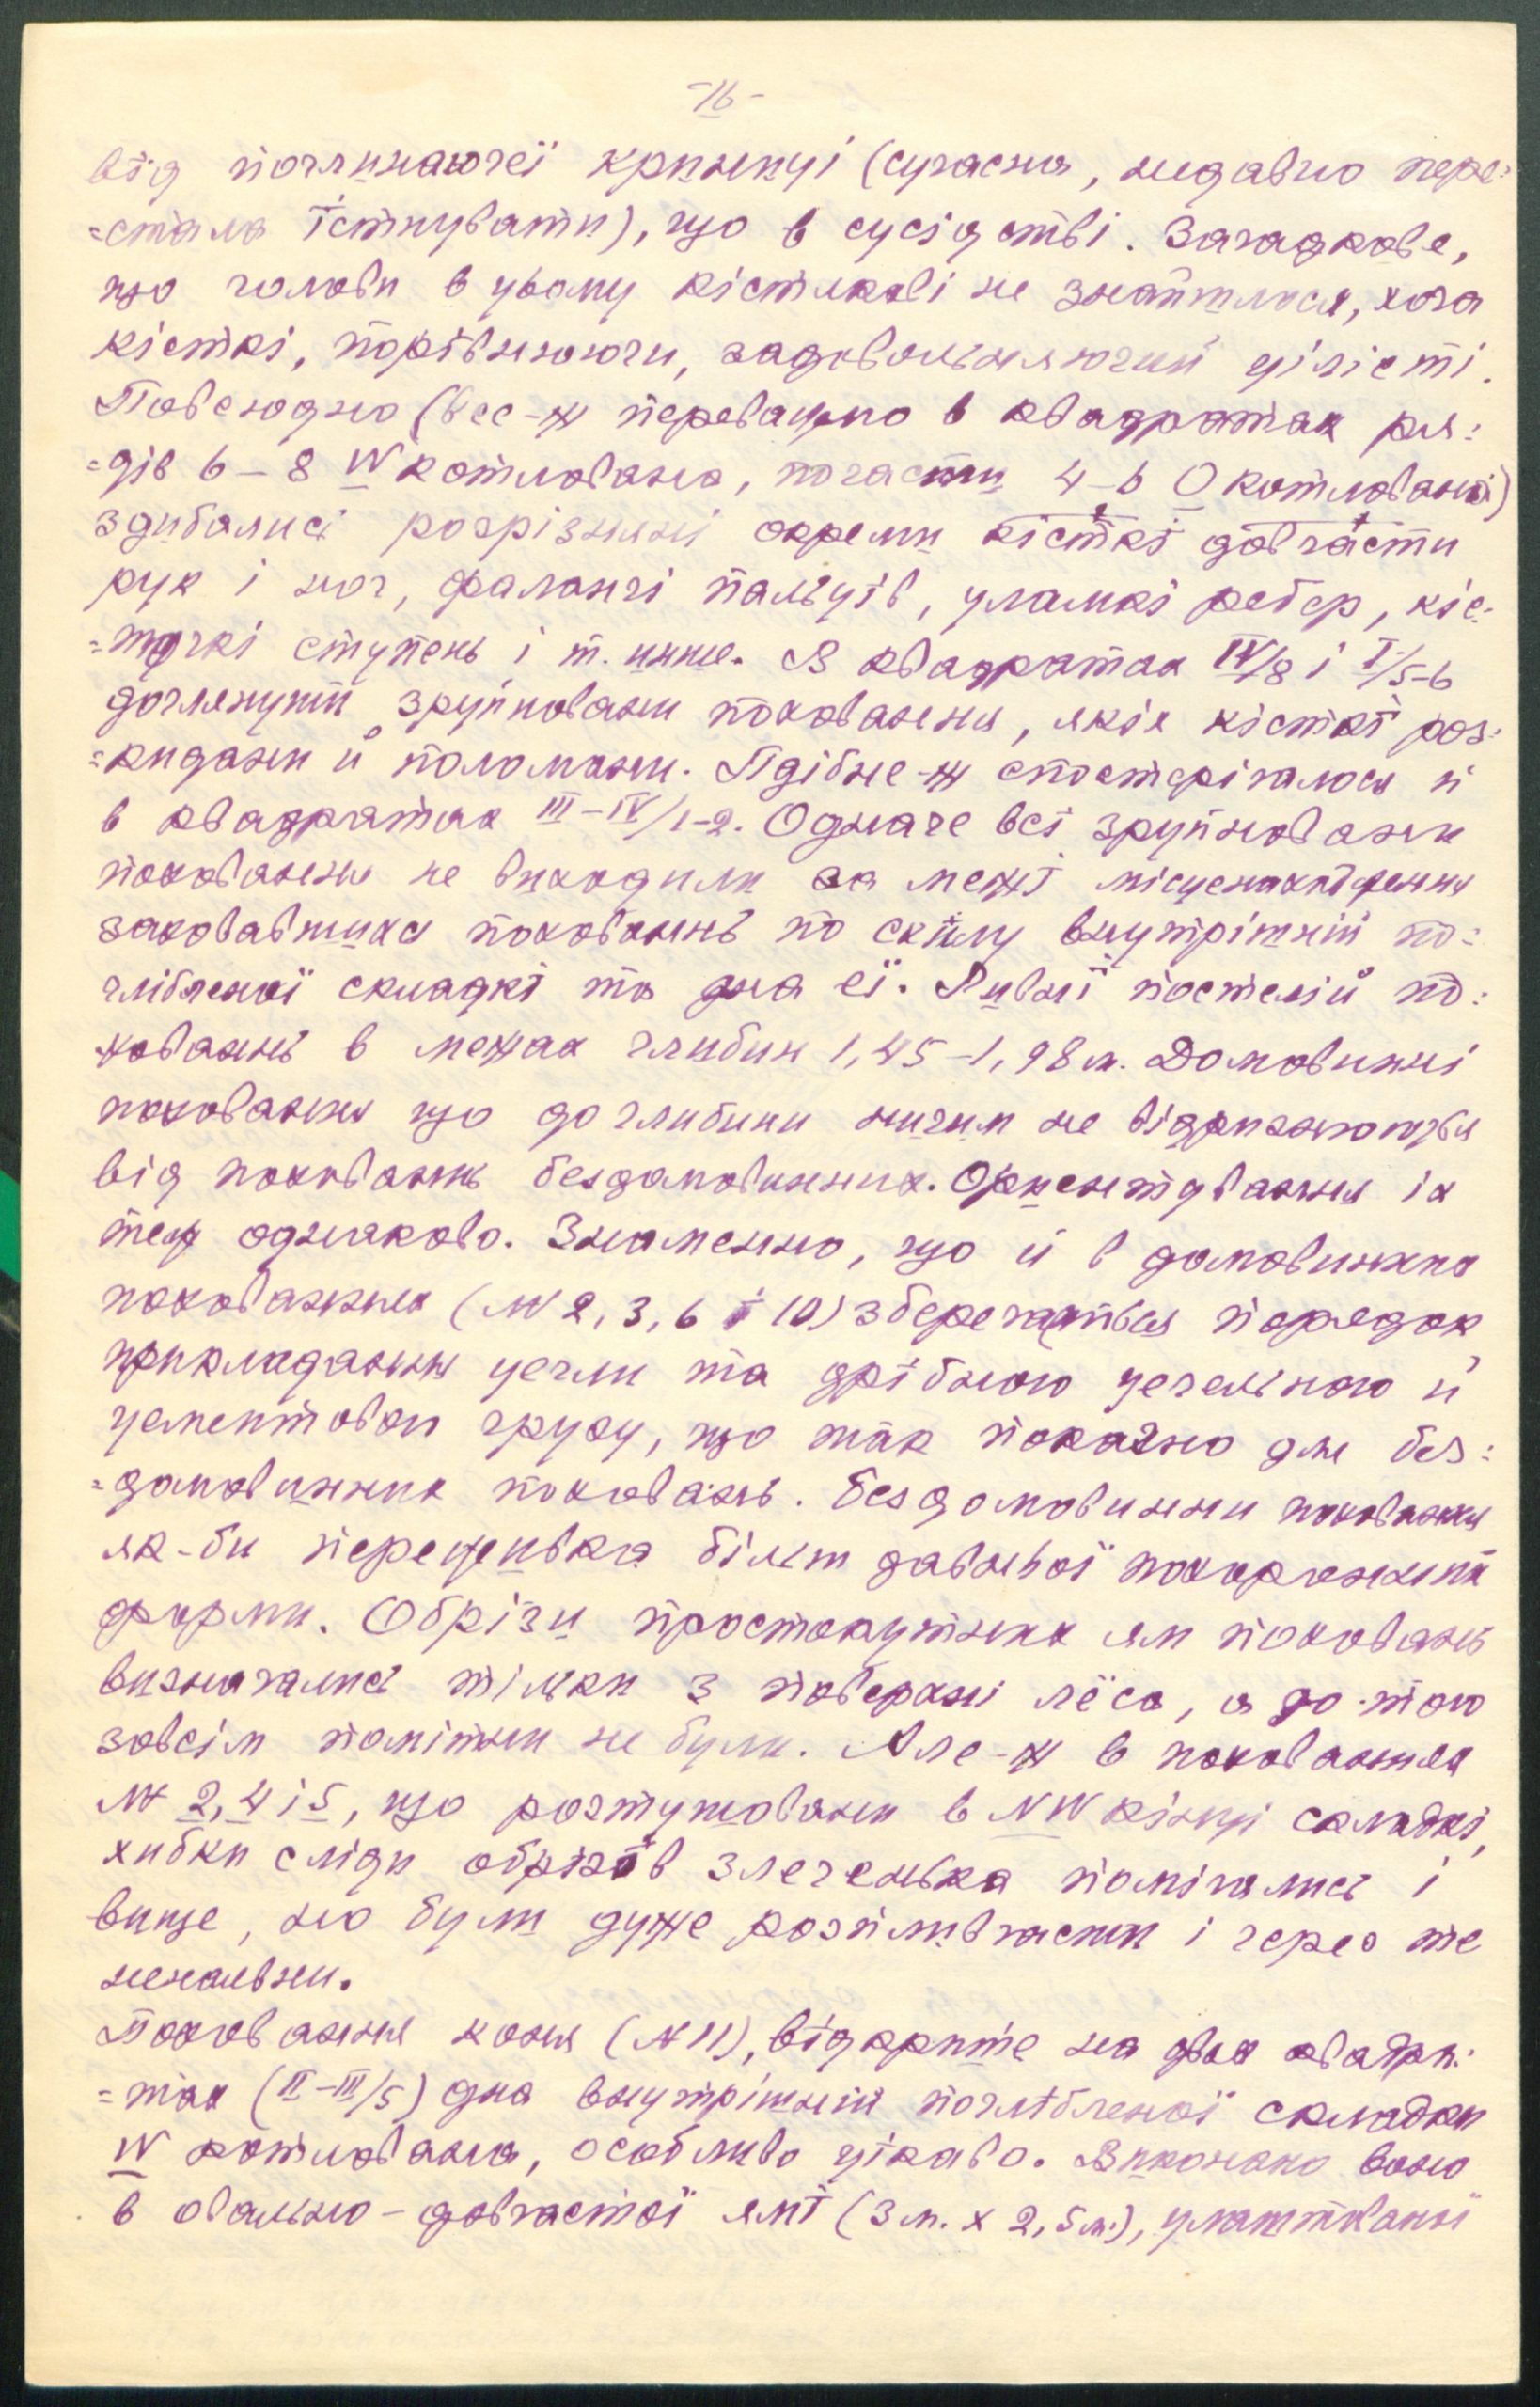 -16-
від поглинаючеї криниці (сучасна, недавно пере=
=стала їстнувати), що в сусідстві. Загадкове,
що голови в цьому кістякові не знайшлося, хоча
кісткі, порівнюючи, задовольняючий цілісті.
Повсюдно (все-ж переважно в квадратах ря=
=дів 6-8 W котлована, почасти 4-6 O котлована)
здибались розрізнені окреми кісткі довгасти
рук і ног, фалангі пальців, уламкі ребер, кіс=
=точкі ступень і т. инше. В квадратах IV/8 і I/5-6
доглянути зруйновани поховання, якіх кісткі роз=
=кидани й поломани. Підібне-ж спостерігалося й
в квадратах III-IV/1-2. Одначе всі зруйновани
поховання не виходили за межі місценахоження
заховавшихся поховань по схилу внутрішній по=
глібленої складкі та дна еї. Рівні постелій по=
ховань в межах глибин 1,45-1,98 м. Домовинні
поховання що до глибини ничим не відризняються
від поховань бездомовинних. Ориентування іх
теж однаково. Знаменно, що й в домовинних
похованнях (№ 2, 3, 6 і 10) зберегається порядок
прикладання цегли та дрібного цегельного й
цементовоо грузу, що так показно для без=
=домовинних поховань. Бездомовинни поховання
як-би перецепвка більш давньої похоронний
форми. Обрізи простокутних ям поховань
визначались тільки з поверхні лёса, а до того
зовсім помітни не були. Але-ж в похованнях
№ 2, 4 і 5, що розтушовани в NW кінці складкі,
хибки сліди обрізів злегенька помічались і
вище, но були дуже розпливчасти і через те
ненаявни.
Поховання коня (№ 11), відкрите на двох квадра=
=тах (II-III/5) дна внутрішній поглібленої складки
W котлована, особливо цікаво. Виконано воно
в овально-довгастої ямі (3 м. х 2,5 м.), улаштвані